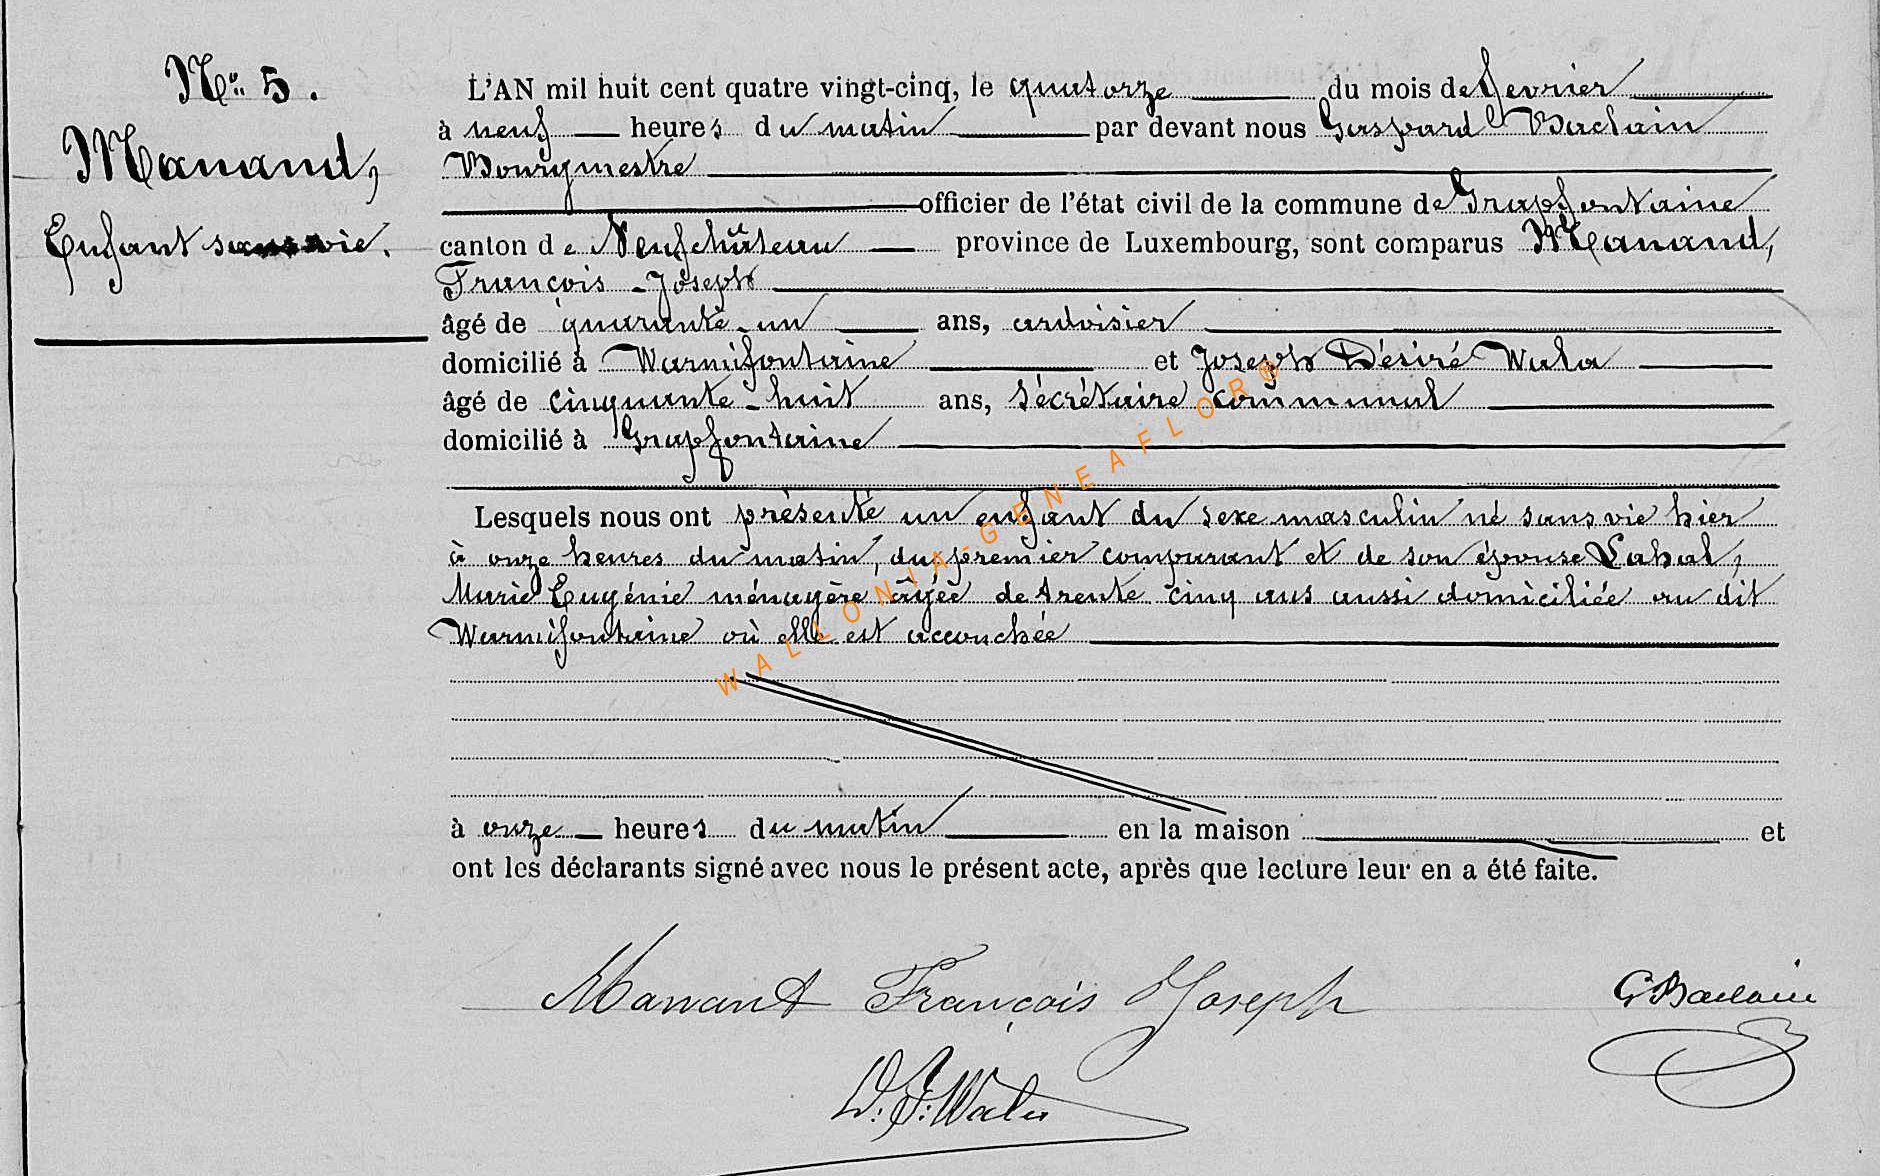 N° 5.
Manand,
Enfant sans vie.
L'AN mil huit cent quatre vingt-cinq, le quatorze du mois de fevrier
à neuf heures du matin par devant nous Gaspard Baclain
Bourgmestre
officier de l'état civil de la commune de Grapfontaine
canton de Neufchâteau province de Luxembourg, sont comparus Manand,
François-Joseph
âgé de quarante-un ans, ardoisier
domicilié à Warmifontaine et Joseph Désiré Wala
âgé de cinquante-huit ans, Sécrétaire communal
domicilié à Grapfontaine
Lesquels nous ont présenté un enfant du sexe masculin né sans vie hier
à onze heures du matin, du premier comparant et de son épouse Lahal,
Marie Eugénie ménagère âgée de trente cinq ans aussi domiciliée au dit
Warmifontaine où elle est accouchée
à onze heures du matin en la maison et
ont les déclarants signé avec nous le présent acte, après que lecture leur en a été faite.
Manant François Joseph
G Baclain
D. J. Wala
WALLONIA-GENEAFLOR®